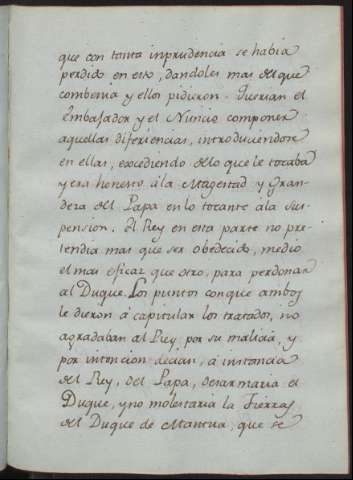 que con tanta inprudencia se habia
perdido en esto, dandoles mas del que
combenia y ellos pidieron. Querian el
Embajador y el Nuncio componer
aquellas diferiencias, introduciendose
en ellas, excediendo de lo que le tocaba
y era honesto á la Magestad y Gran-
deza del Papa en lo tocante á la sus-
pension. El Rey en esta parte no pre-
tendia mas que ser obedecido, medio
el mas eficaz que otro, para perdonar
al Duque. Los puntos con que ambos
le dieron á capitular los tratados, no
agradaban al Rey por su malicia, y
por intencion decian, á instancia
del Rey, del Papa, desarmaria el
Duque, y no molestaria la Tierras
del Duque de Mantua, que se